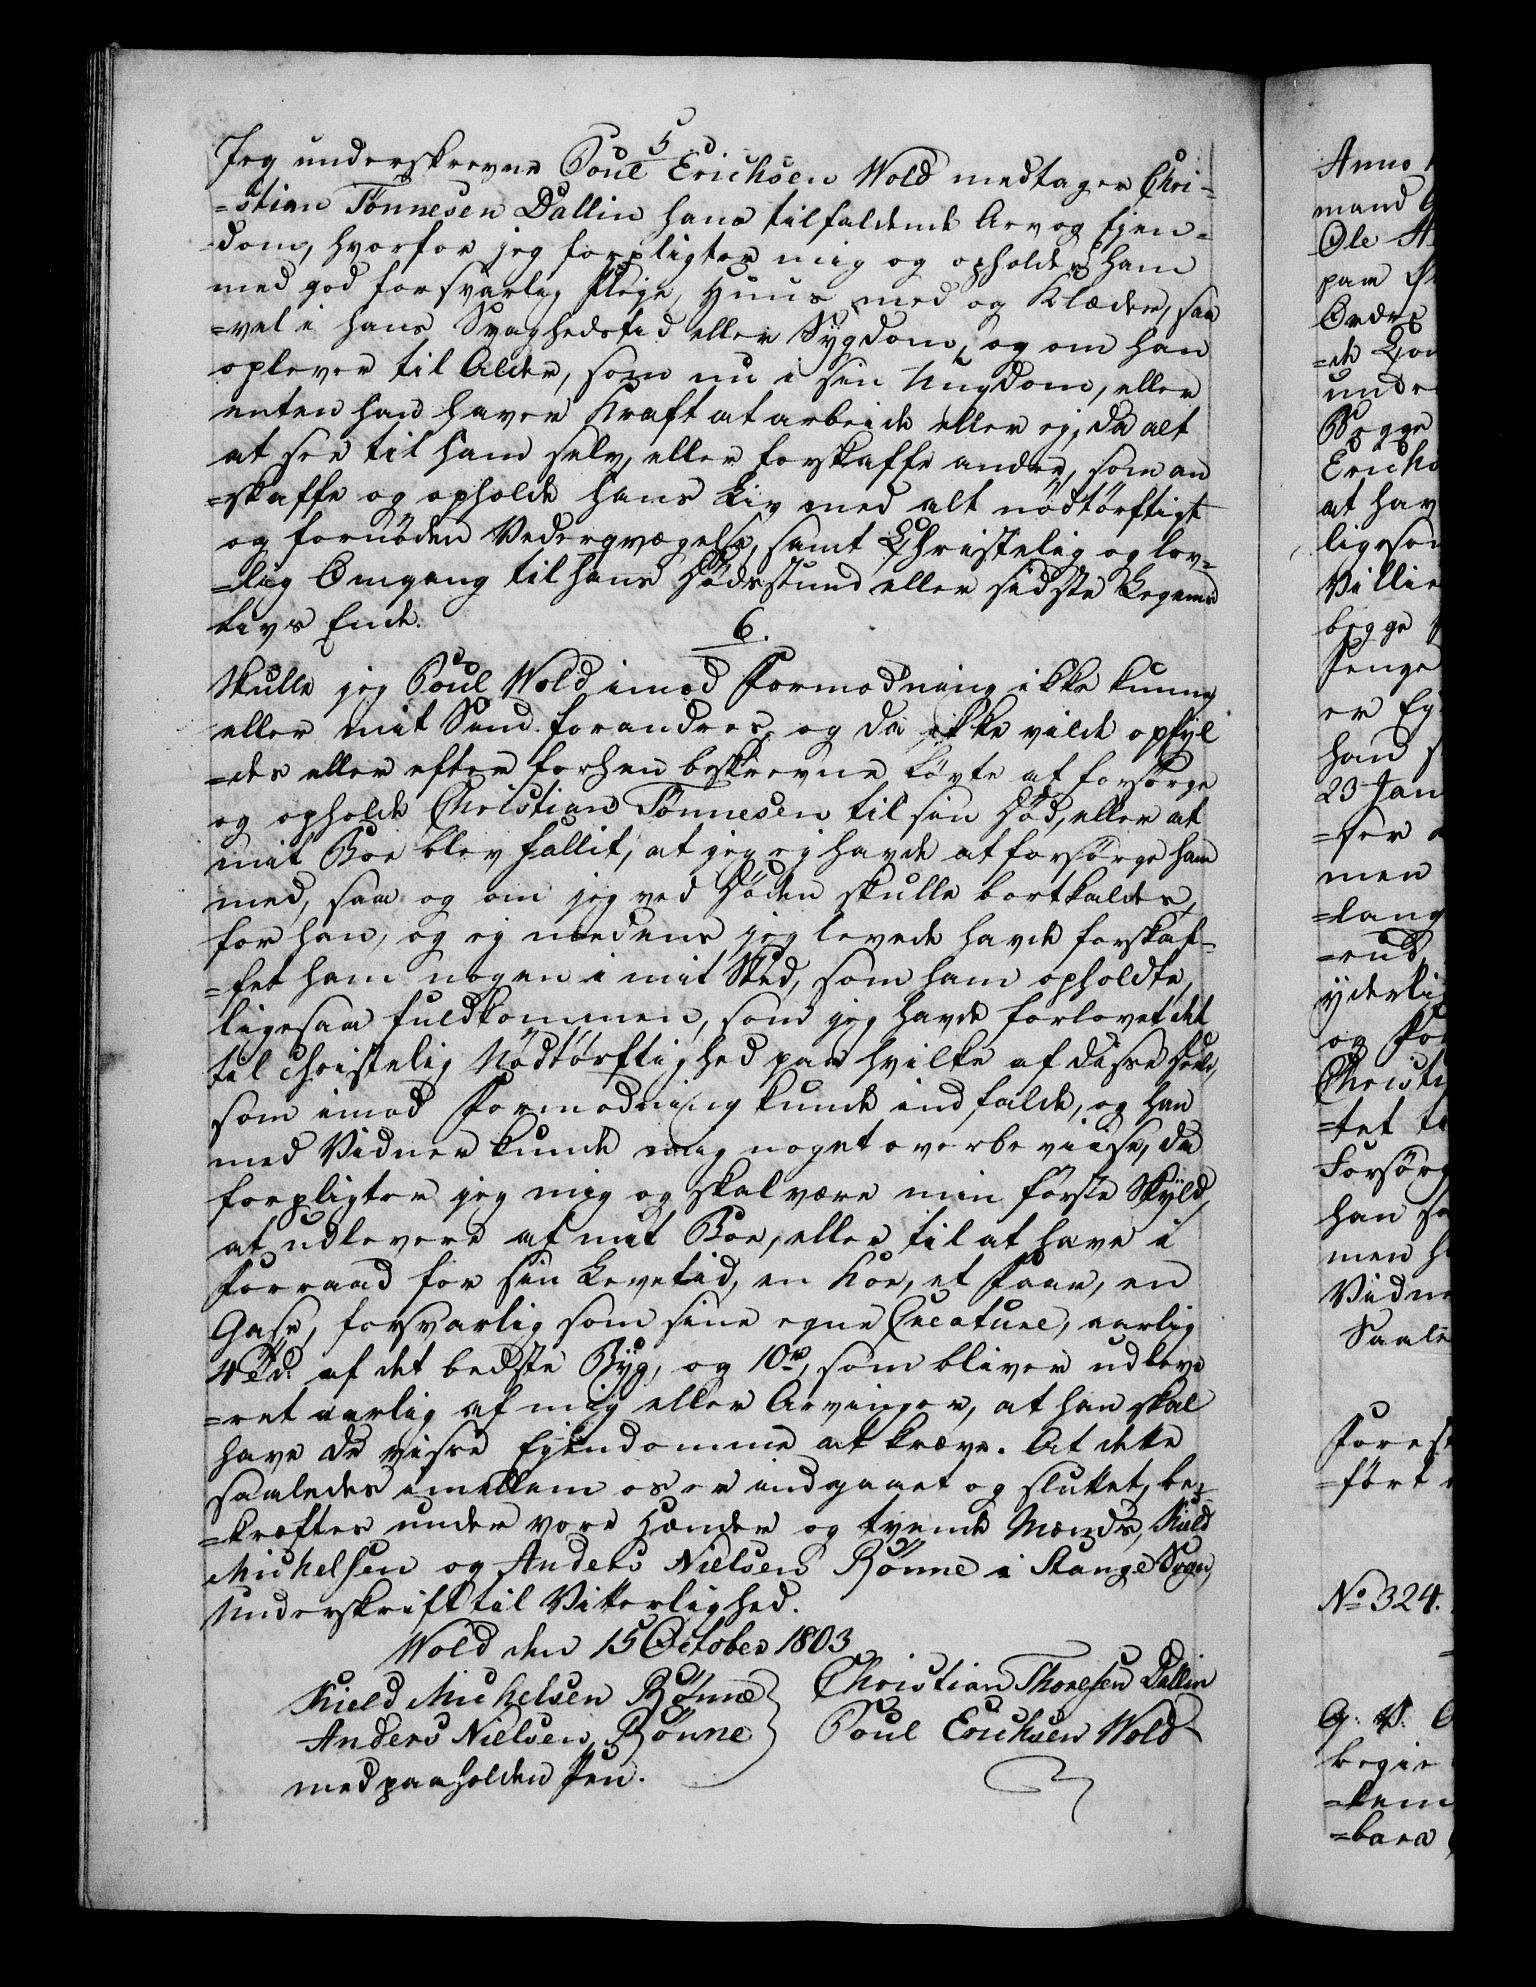 5
Jeg underskrevne Poul Erichsen Wold modtager Chri-
=stian Tønnesen Dallin hans tilfaldende Arv og Ejen-
=dom, hvorfor jeg forpligter mig og opholder ham
med god forsvarlig Pleje, Huus, med og Klæder, saa
=vel i hans Svaghedstid eller Sygdom, og om han
oplever til Alder, som nu i sin Ungdom, eller
enten han haver Kraft at arbeide eller ej, da alt
at see til ham selv, eller forskaffe andre, som an
=skaffe og opholde hans Liv med alt nødtørftigt
og fornøden Vedergvægelse, samt Christelig og lov-
=lig Omgang til hans Dødsstund eller sidste Legems
Livs Ende.
6.
Skulle jeg Poul Wold imod Formodning ikke kunne
eller mit Sind forandres, og da ikke vilde opfyl
=des eller efter forhen beskrevne Løvte at forsørge
og opholde Christian Tønnesen til sin Død, eller at
mit Boe blev fallit, at jeg ej havde at forsørge ham
med, saa og om jeg ved Døden skulle bortkaldes,
for han, og ej medens jeg levede havde forskaf-
=fet ham nogen i mit Sted, som ham opholdte,
ligesaa fuldkommen, som jeg havde forlovet det
til christelig Nødtørftighed paa hvilke af disse Poster,
som imod Formodning kunde indfalde, og han
med Vidner kunde mig noget overbeviise, da
forpligter jeg mig og skal være min første Skyld,
at udlevere af mit Boe, eller til at have i
Forraad for sin Levetid, en Koe, et Faar, en
Gase, forsvarlig som sine egne Creature, aarlig
4 Td. af det bedste Byg, og 10 rd, som bliver udleve
=ret aarlig af mig eller Arvinger, at han skal
have de visse Ejendomme at kræve. At dette
saaledes imellem os er indgaaet og sluttet, be-
=kræftes under vore Hænder og tvende Mænds, Kield
Michelsen og Anders Nielsen Bønne i Stange Sogn,
Underskrift til Vitterlighed.
Wold den 15 October 1803
Kield Michelsen Bønne Christian Thønesen Dallin
Anders Nielsen Bønne Poul Erichsen Wold
med paaholden Pen.
Anno
mand
Ole
paa
Ordr
=de
under
Begge
Erichs
at hav
ligeson
Villie
begge
Penge
er Eg
han
23 Jan
men
=lang
=rud
yderli
og For
Christi
=tet
Forsørg
han
men
Vidne
Saale
Forest
=ført
No 324.
begie
=tem
=bare